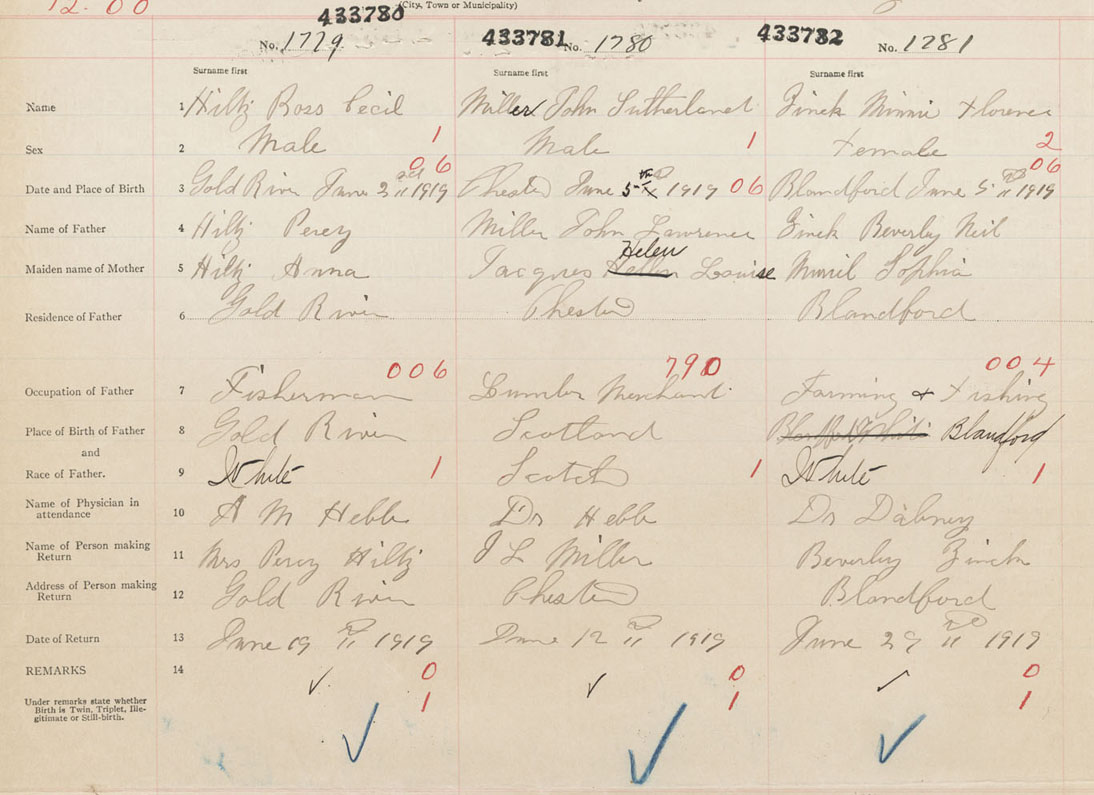 12.00
(City, Town or Municipality)
433780 433781 433782
No. 1779 No. 1780 No. 1781
Surname first Surname first Surname first
Name 1 Hiltz Ross Cecil Miller John Sutherland Zinck Minnie Florence
Sex 2 Male 1 Male 1 Female 2
06 06
Date and Place of Birth 3 Gold River June 2 1919 Chester June 5th 1919 06 Blandford June 5 1919
Name of Father 4 Hiltz Percy Miller John Lawrence Zinck Beverly Neil
Helen
Maiden name of Mother 5 Hiltz Anna Jacques Louise Sophia
Residence of Father 6 Gold River Chester Blandford
006 790 004
Occupation of Father 7 Fisherman Lumber Merchant Farming & Fishing
Place of Birth of Father 8 Gold River Scotland Blandford
and
Race of Father. 9 White 1 Scotch 1 White 1
Name of Physician in
attendance 10 A M Hebb Dr Hebb Dr Dabney
Name of Person making
Return 11 Mrs Percy Hiltz J L Miller Beverley Zinck
Address of Person making
Return 12 Gold River Chester Blandford
Date of Return 13 June 19 1919 June 12 1919 June 29 1919
REMARKS 14 0 0 0
Under remarks state whether
Birth is Twin, Triplet, Ille-
gitimate or Still-birth. 1 1 1